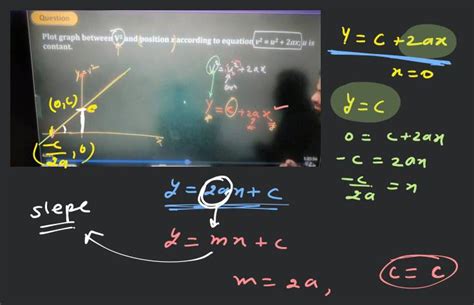 Question
Plot graph between V² and position x according to equation v² = u² + 2ax; a is
contant.
v²
(0, c)
c
(-c/2a, 0)
x
v² = u² + 2ax
y = c + 2ax
y = c + 2ax
x = 0
y = c
0 = c + 2ax
-c = 2ax
-c/2a = x
y = 2ax + c
slope
y = mx + c
m = 2a,
c = c